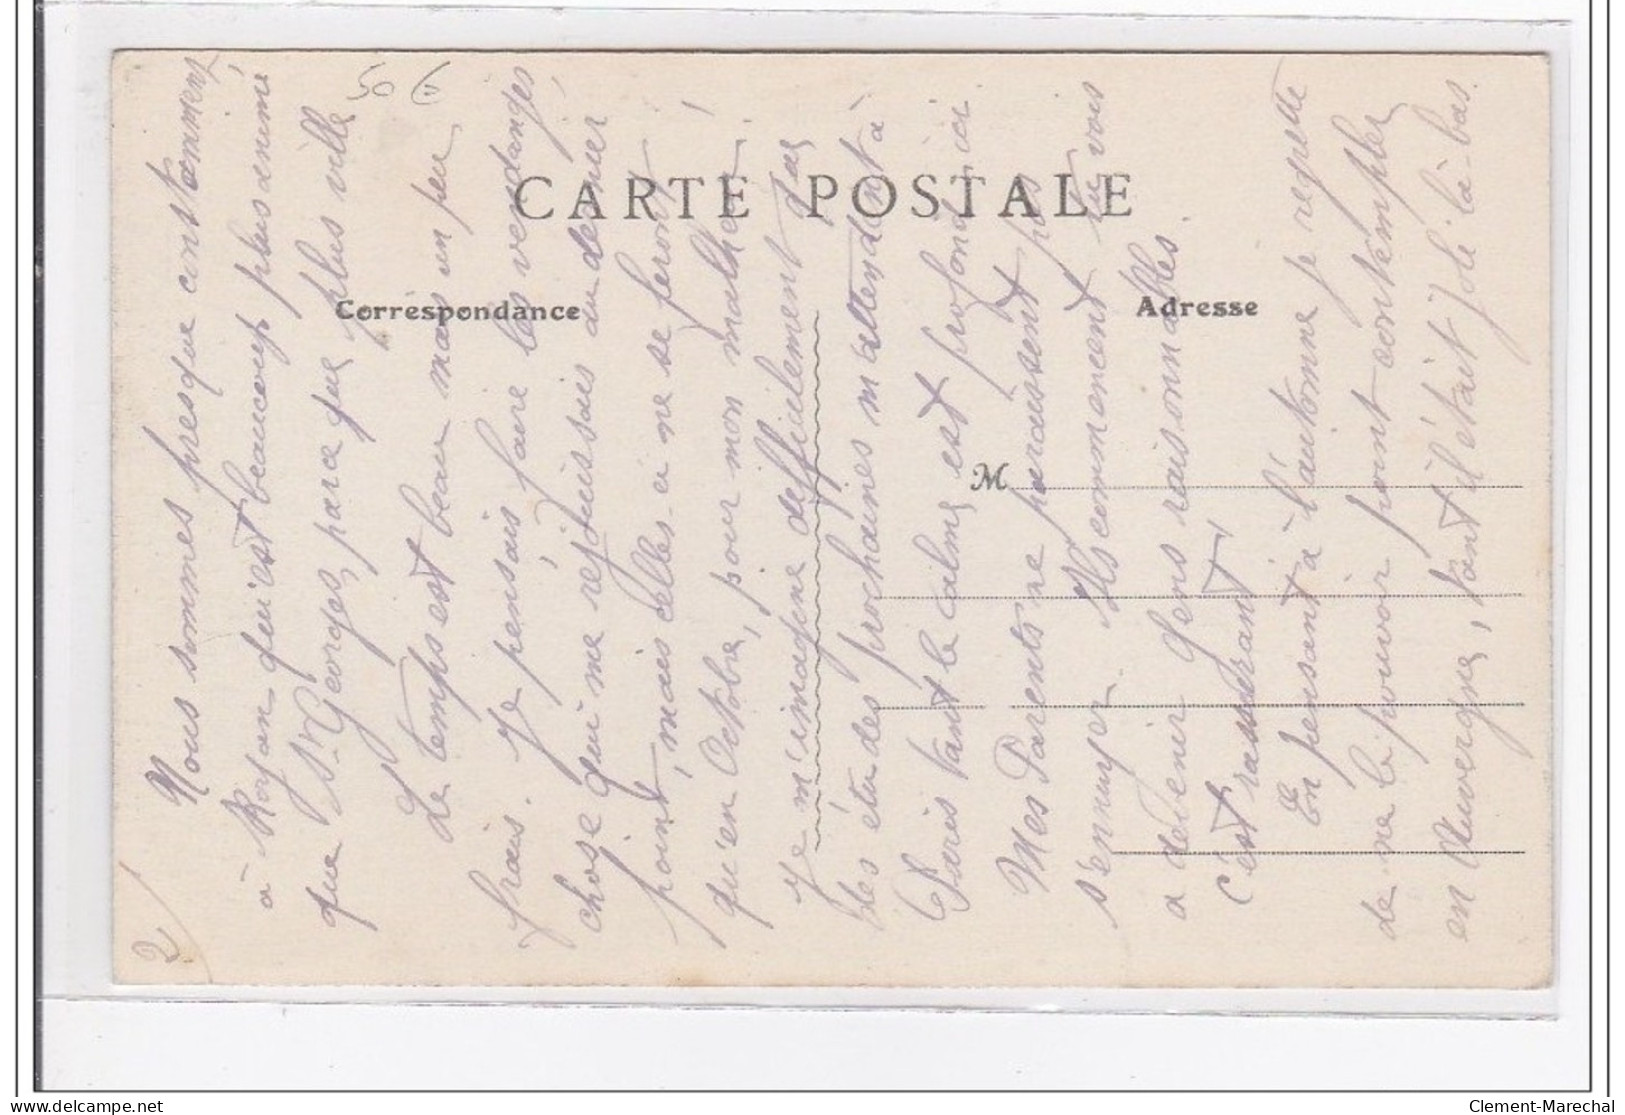 CARTE POSTALE
Correspondance
Adresse
M
50 €
2)
Nous sommes presque constamment
à Royan qui est beaucoup plus animé
que St-Georges, parce que plus ville
Le temps est beau mais un peu
frais. Je pensais faire les vendanges
chose qui me réjouissais du dernier
point, mais celles-ci ne se feront
qu'en Octobre, pour mon malheur!
Je m'imagine difficilement que
les études prochaines m'attendent à
Paris tant le calme est profond ici
Mes Parents ne paraissent pas
s'ennuyer. Ils commencent tu vois
a devenir gens raisonnables.
C'est rassurant!
En pensant à l'automne je regrette
de ne le pouvoir point contempler
en Auvergne, tant il était joli là-bas.
Clement-Marechal
delcampe.net